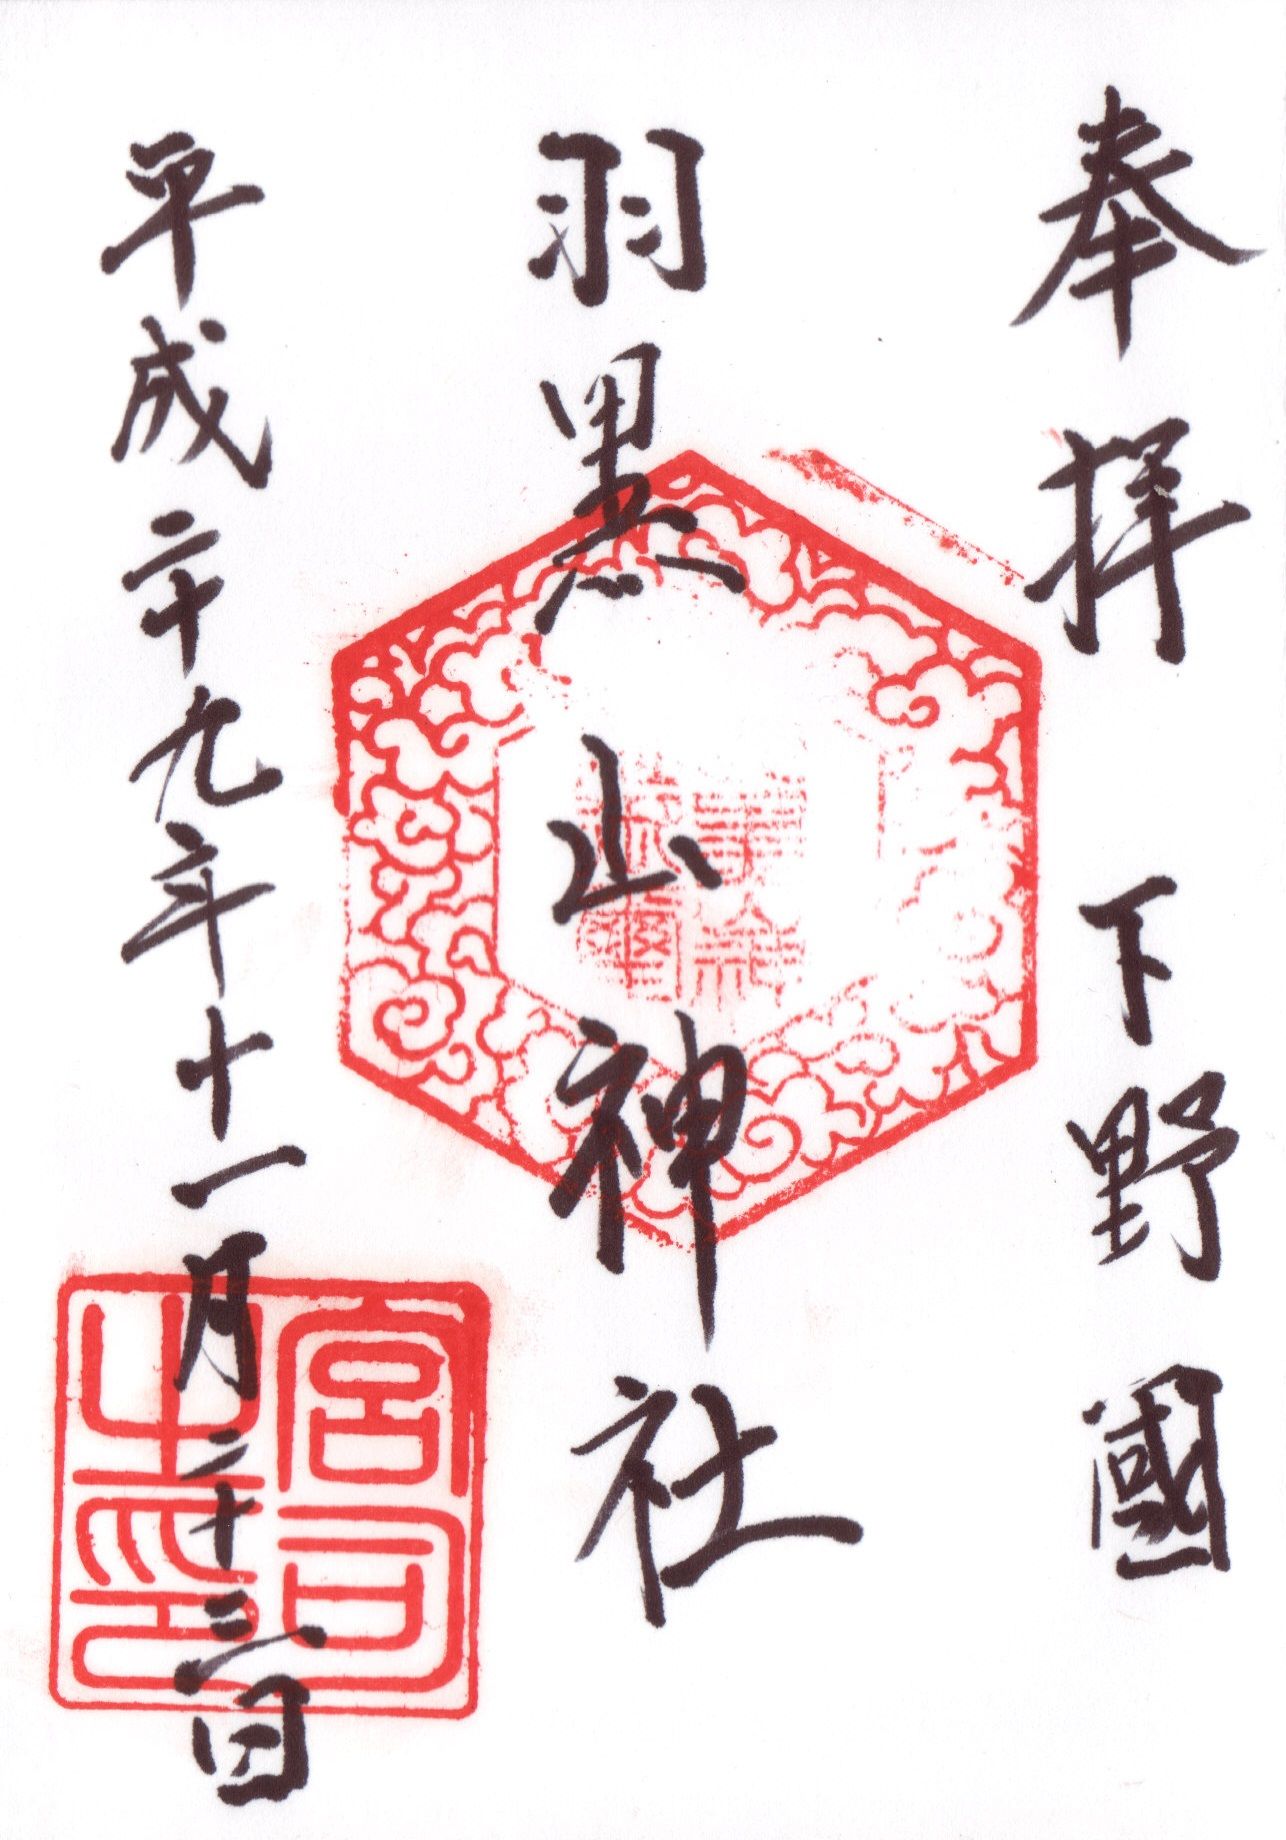 奉拝 下野國
羽黒山神社
平成二十九年十一月二十三日
宮司
之印